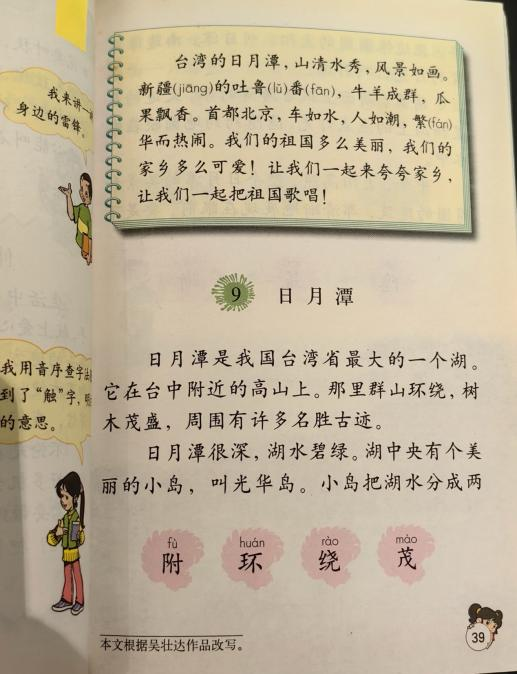 我来讲一
身边的雷锋。
我用音序查字法
到了“触”字，
的意思。
台湾的日月潭，山清水秀，风景如画。
新疆(jiāng)的吐鲁(lǔ)番(fān)，牛羊成群，瓜
果飘香。首都北京，车如水，人如潮，繁(fán)
华而热闹。我们的祖国多么美丽，我们的
家乡多么可爱！让我们一起来夸夸家乡，
让我们一起把祖国歌唱！
9 日月潭
日月潭是我国台湾省最大的一个湖。
它在台中附近的高山上。那里群山环绕，树
木茂盛，周围有许多名胜古迹。
日月潭很深，湖水碧绿。湖中央有个美
丽的小岛，叫光华岛。小岛把湖水分成两
fù huán rào mào
附 环 绕 茂
本文根据吴壮达作品改写。
39